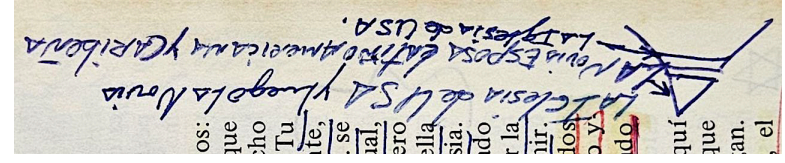 LA IGlesia de USA y luego la Novia
LA Novia ESPOSA LATINOAMERICANA Y CARIBEÑA
LA Iglesia de USA.
os:
que
cho
Tu
te,
se
ual,
ero
ella
sia.
ndo
r la
nir.
dos
o y,
ndo,
quí
que
an.
, el